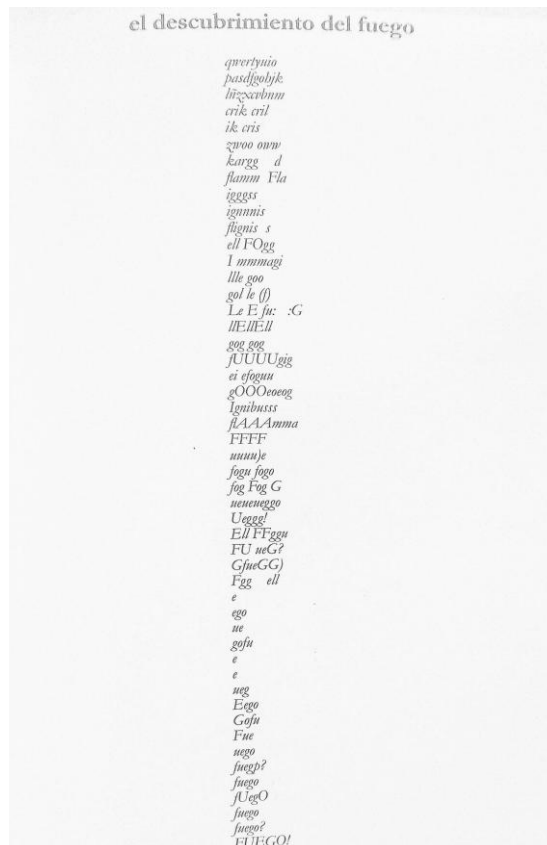 el descubrimiento del fuego
qwertyuio
pasdfgohjk
lñzxcvbnm
crik cril
ik cris
zwoo oww
kargg d
flamm Fla
igggss
ignnnis
flignis s
ell FOgg
I mmmagi
llle goo
gol le (f)
Le E fu: :G
llEllEll
gog gog
fUUUUgig
ei efoguu
gOOOeoeog
Ignibusss
flAAAmma
FFFF
uuuu)e
fogu fogo
fog Fog G
ueueueggo
Ueggg!
Ell FFggu
FU ueG?
GfueGG)
Fgg ell
e
ego
ue
gofu
e
e
ueg
Eego
Gofu
Fue
uego
fuegp?
fuego
fUegO
fuego
fuego?
FUEGO!